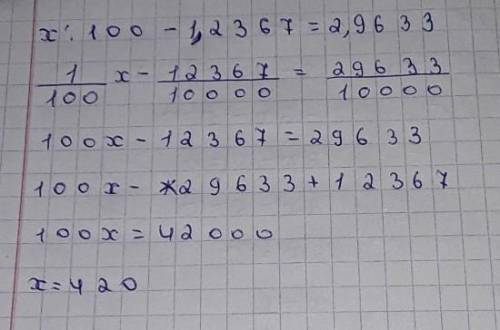 x : 100 - 1,2367 = 2,9633
1/100 x - 12367/10000 = 29633/10000
100x - 12367 = 29633
100x - *29633 + 12367
100x = 42000
x = 420